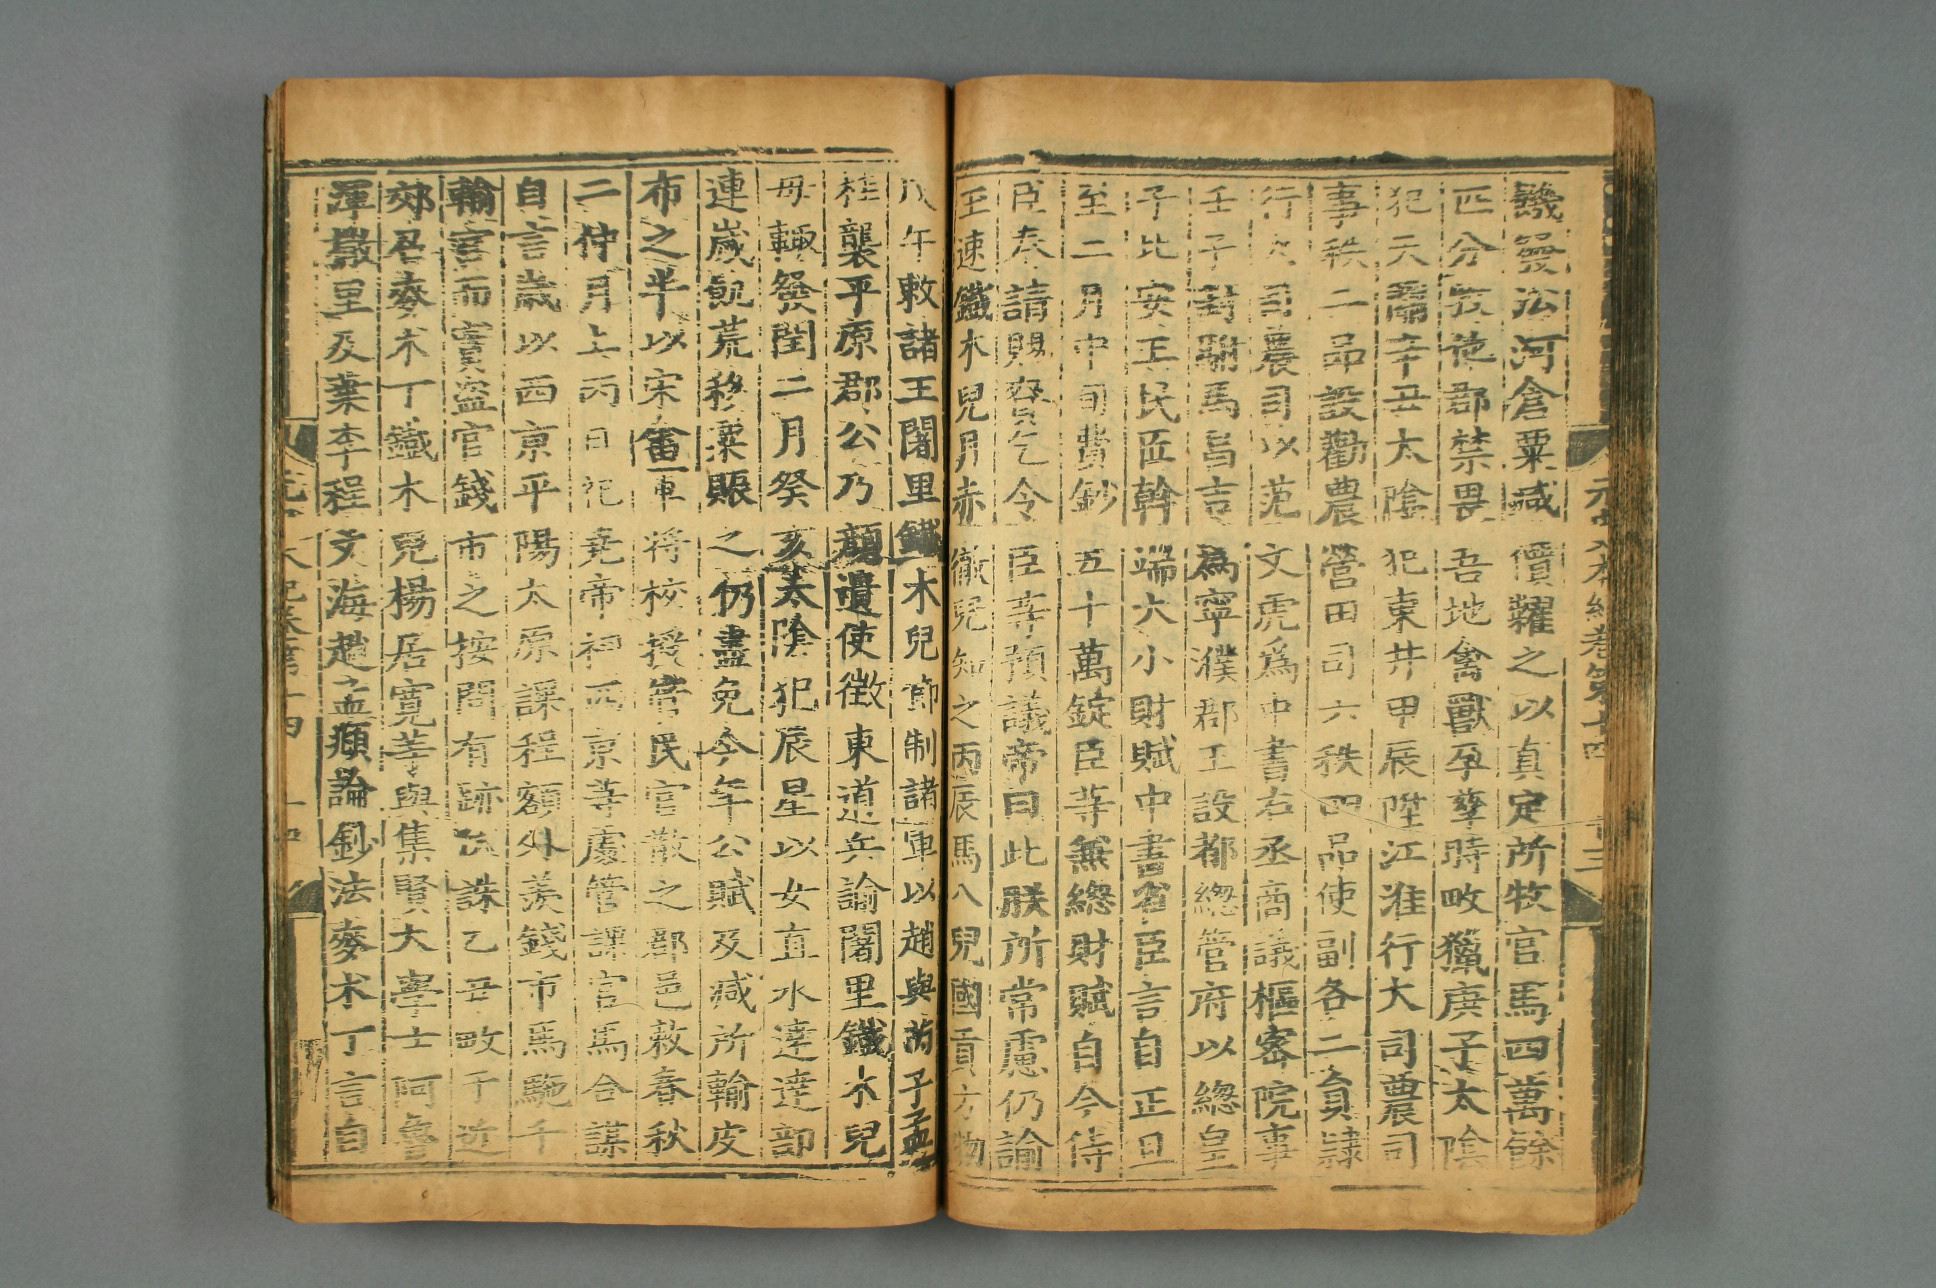 饑發㳂河倉粟減價糶之以真定所牧官馬四萬餘
匹分牧他郡禁畏吾地禽獸孕孳時畋獵庚子太陰
犯天關辛丑太陰犯東井甲辰陞江淮行大司農司
事秩二品設勸農營田司六秩四品使副各二員隷
行大司農司以范文虎爲中書右丞商議樞密院事
壬子封駙馬昌吉爲寧濮郡王設都總管府以總皇
子北安王民匠斡端大小財賦中書省臣言自正旦
至二月中旬費鈔五十萬錠臣等無總財賦自今侍
臣奏請賜賚乞令臣等預議帝曰此朕所常慮仍諭
至速鐵木兒月赤徹兒知之丙辰馬八兒國貢方物
戊午敕諸王闍里鐵木兒節制諸軍以趙與芮子孟
桂襲平原郡公乃顏遣使徵東道兵諭闍里鐵木兒
毋輒發閏二月癸亥太陰犯辰星以女直水達達部
連歲飢荒移粟賑之仍盡免今年公賦及減所輸皮
布之半以宋畬軍將校授管民官散之郡邑敕春秋
二仲月上丙日祀堯帝祠西京等處管課官馬合謀
自言歲以西京平陽太原課程額外羨錢市馬駞千
輸官而實盜官錢市之按問有跡伏誅乙丑畋于近
郊召麥朮丁鐵木兒楊居寬等與集賢大學士阿魯
渾撒里及葉李程文海趙孟頫論鈔法麥朮丁言自